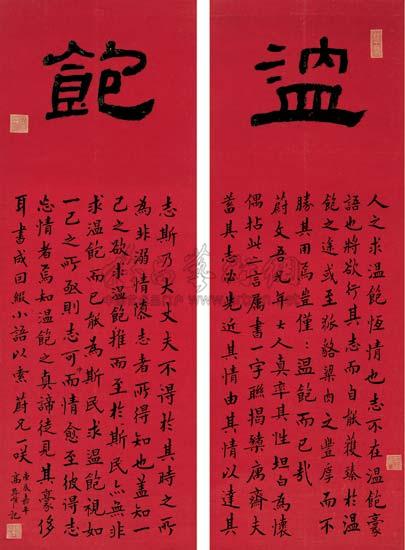 温
人之求温飽恆情也志不在温飽豪
語也將欲行其志而自獲臻於温
飽之途或至狼藉粱肉之豐厚而不
勝其用焉豈僅温飽而已哉
蔚文吾兄年士人真率其性坦白為懷
偶拈此二言属書一字聯揭櫫齋夫
蓄其志必先近其情由其情以達其
飽
志斯乃大丈夫不得於其時之所
為非溺情隳志者所得知也蓋知一
己之欲求温飽推而至於斯民亦無非
求温飽而已能為斯民求温飽視如
一己之所亟則志可而情愈至彼得志
忘情者焉知温飽之真諦徒見其豪侈
耳書成回綴小語以索蔚兄一咲
辰嘉平
高記